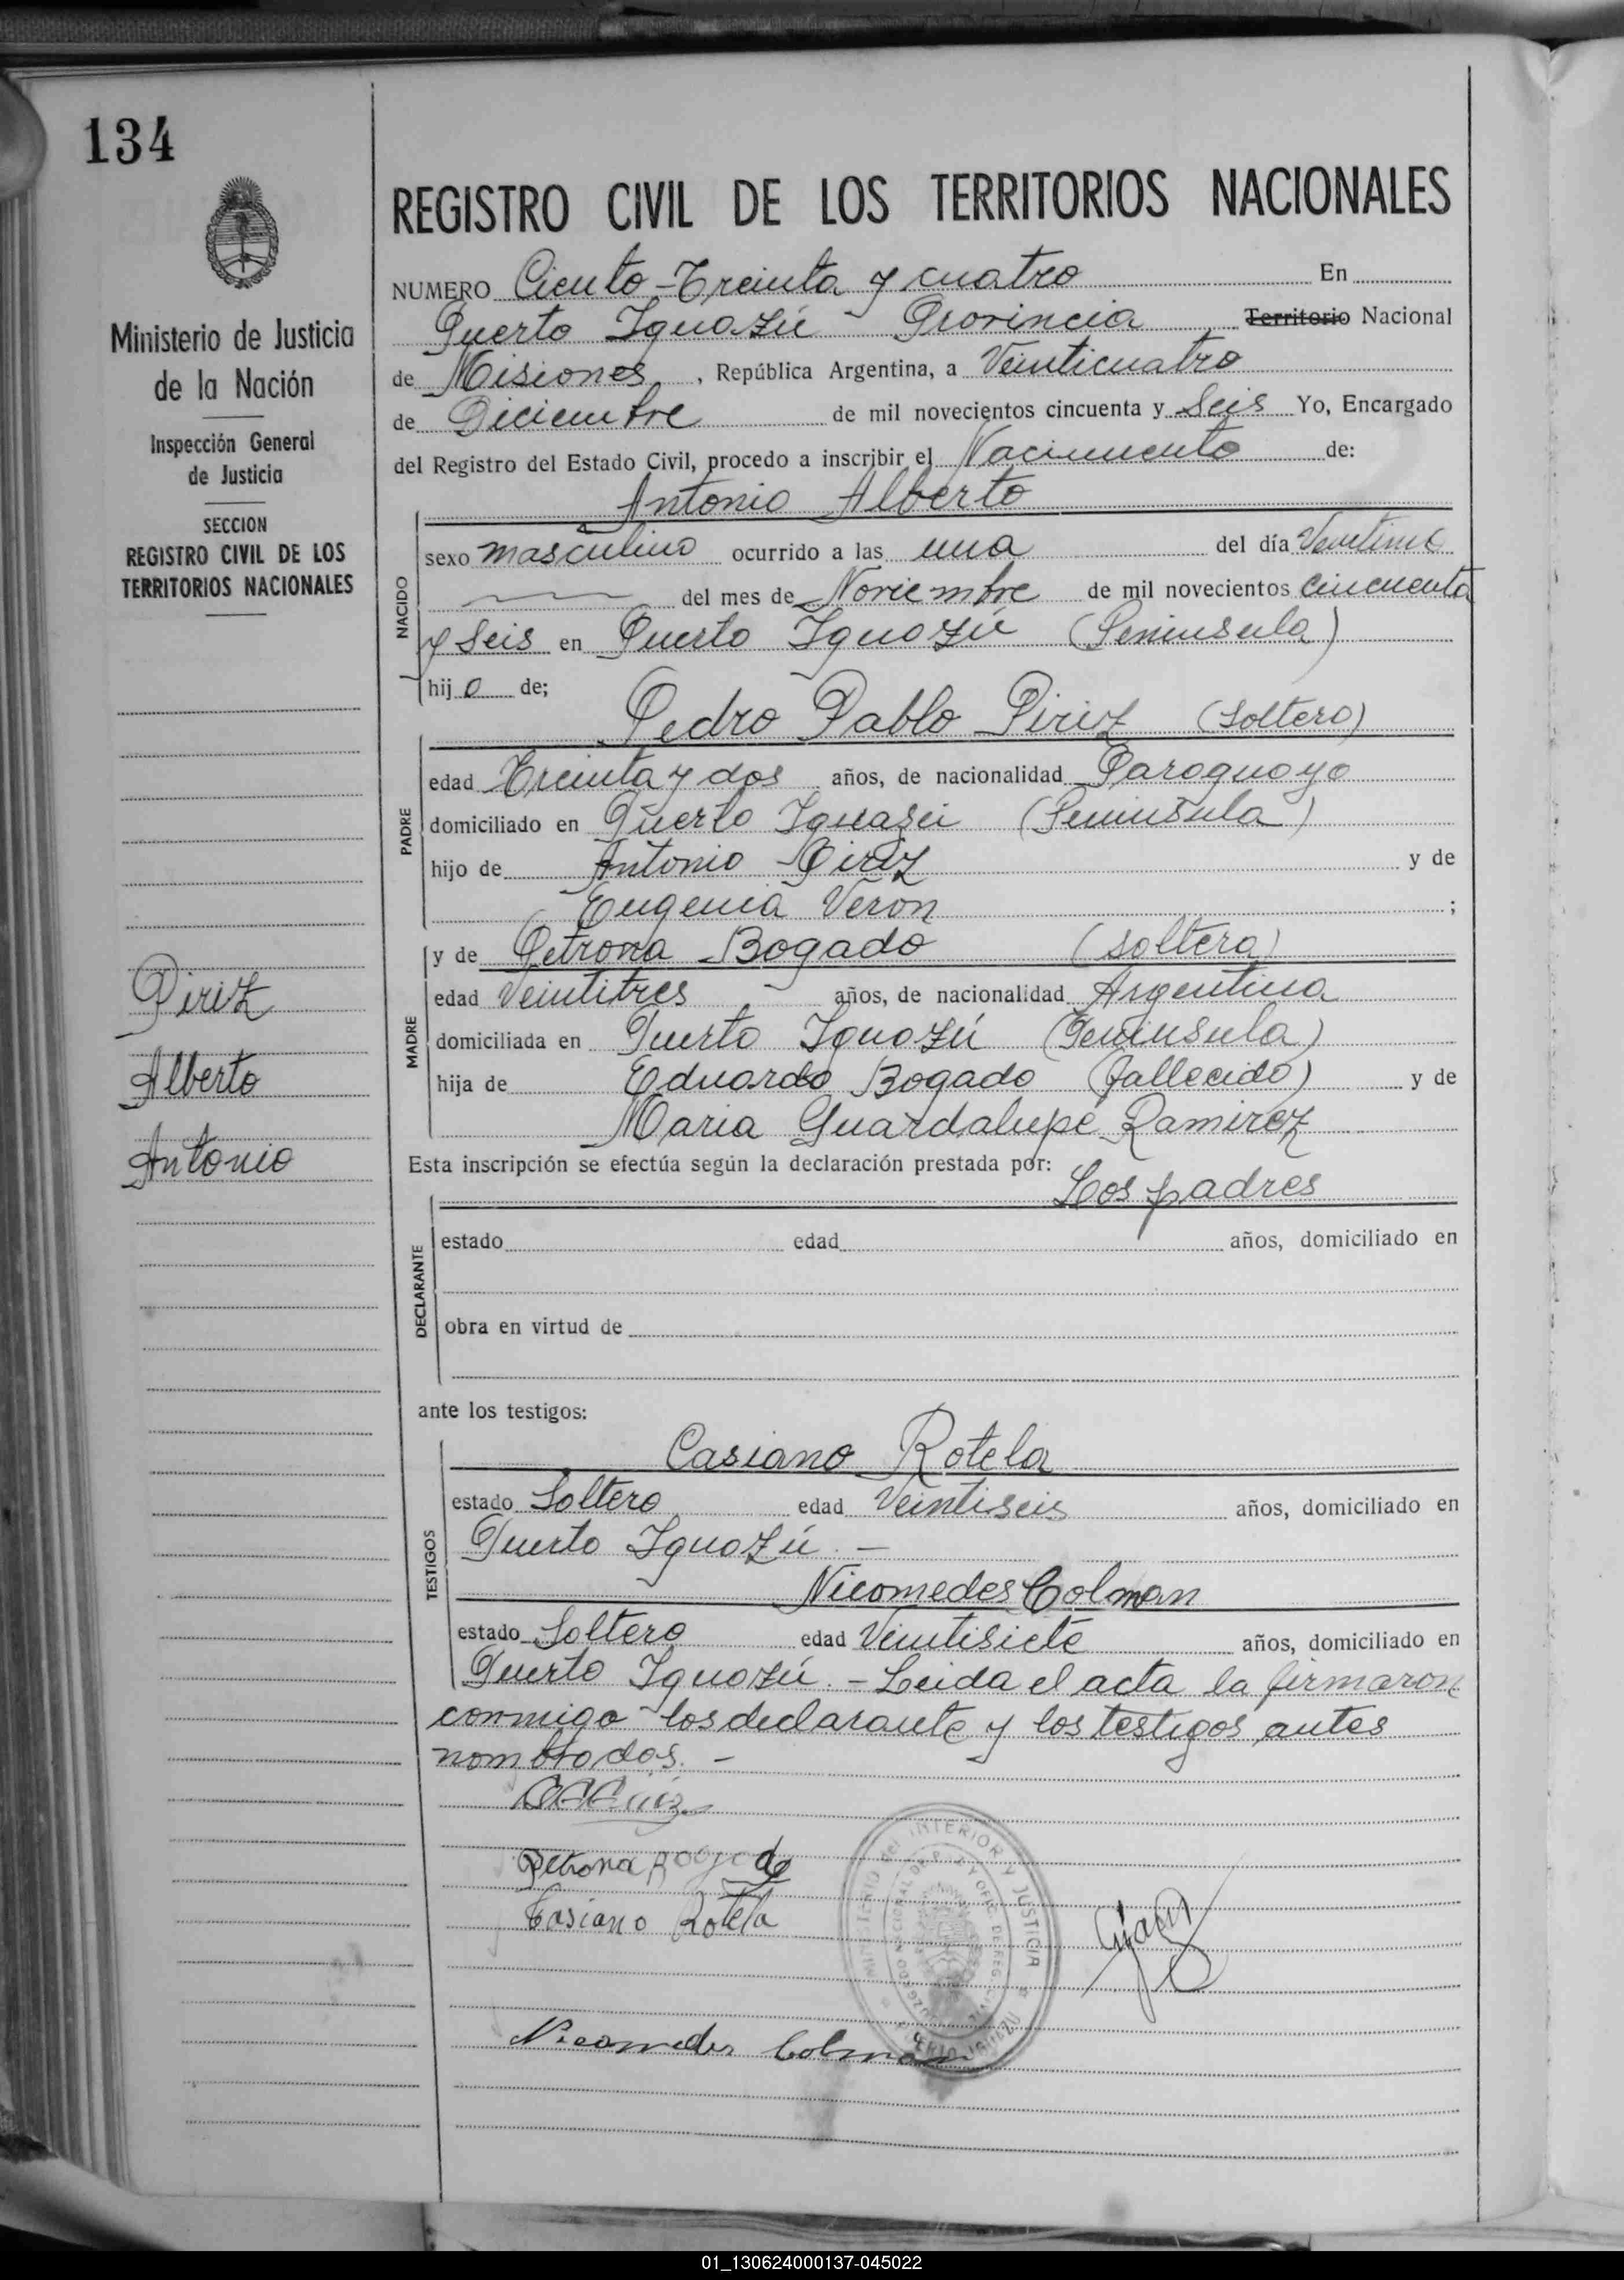 134
Ministerio de Justicia
de la Nación
Inspección General
de Justicia
SECCION
REGISTRO CIVIL DE LOS
TERRITORIOS NACIONALES
Piriz
Alberto
Antonio
REGISTRO CIVIL DE LOS TERRITORIOS NACIONALES
NUMERO Ciento - Treinta y cuatro En
Puerto Iguazú Provincia Territorio Nacional
de Misiones, República Argentina, a Veinticuatro
de Diciembre de mil novecientos cincuenta y Seis Yo, Encargado
del Registro del Estado Civil, procedo a inscribir el Nacimiento de:
Antonio Alberto
NACIDO
sexo masculino ocurrido a las una del día
del mes de Noviembre de mil novecientos cincuenta
y Seis en Puerto Iguazú (Peninsula)
hijo de;
Pedro Pablo Piriz (Soltero)
PADRE
edad Treinta y dos años, de nacionalidad Paraguayo
domiciliado en Puerto Iguazú (Peninsula)
hijo de Antonio Piriz y de
Eugenia Veron ;
y de Petrona Bogado (soltera)
MADRE
edad Veintitres años, de nacionalidad Argentina
domiciliada en Puerto Iguazú (Peninsula)
hija de Eduardo Bogado (fallecido) y de
Maria Guardalupe Ramirez
Esta inscripción se efectúa según la declaración prestada por:
Los padres
DECLARANTE
estado edad años, domiciliado en
obra en virtud de
ante los testigos:
Casiano Rotela
TESTIGOS
estado Soltero edad Veintiseis años, domiciliado en
Puerto Iguazú. -
Nicomedes Colman
estado Soltero edad Veintisiete años, domiciliado en
Puerto Iguazú. - Leida el acta la firmaron
conmigo los declarante y los testigos antes
nombrados. -
Petrona Bogado
Casiano Rotela
Nicomedes Colman
MINISTERIO del INTERIOR Y JUSTICIA
PUERTO IGUAZU
01_130624000137-045022